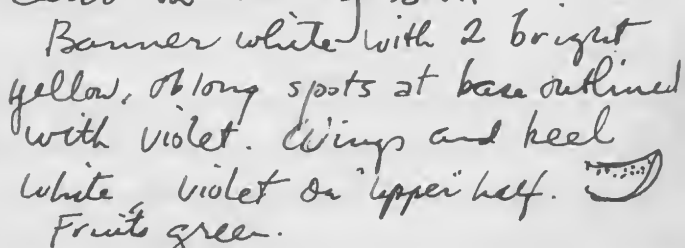 Banner white with 2 bright
yellow, oblong spots at base outlined
with violet. Wings and keel
white, violet on "upper" half.
Fruits green.